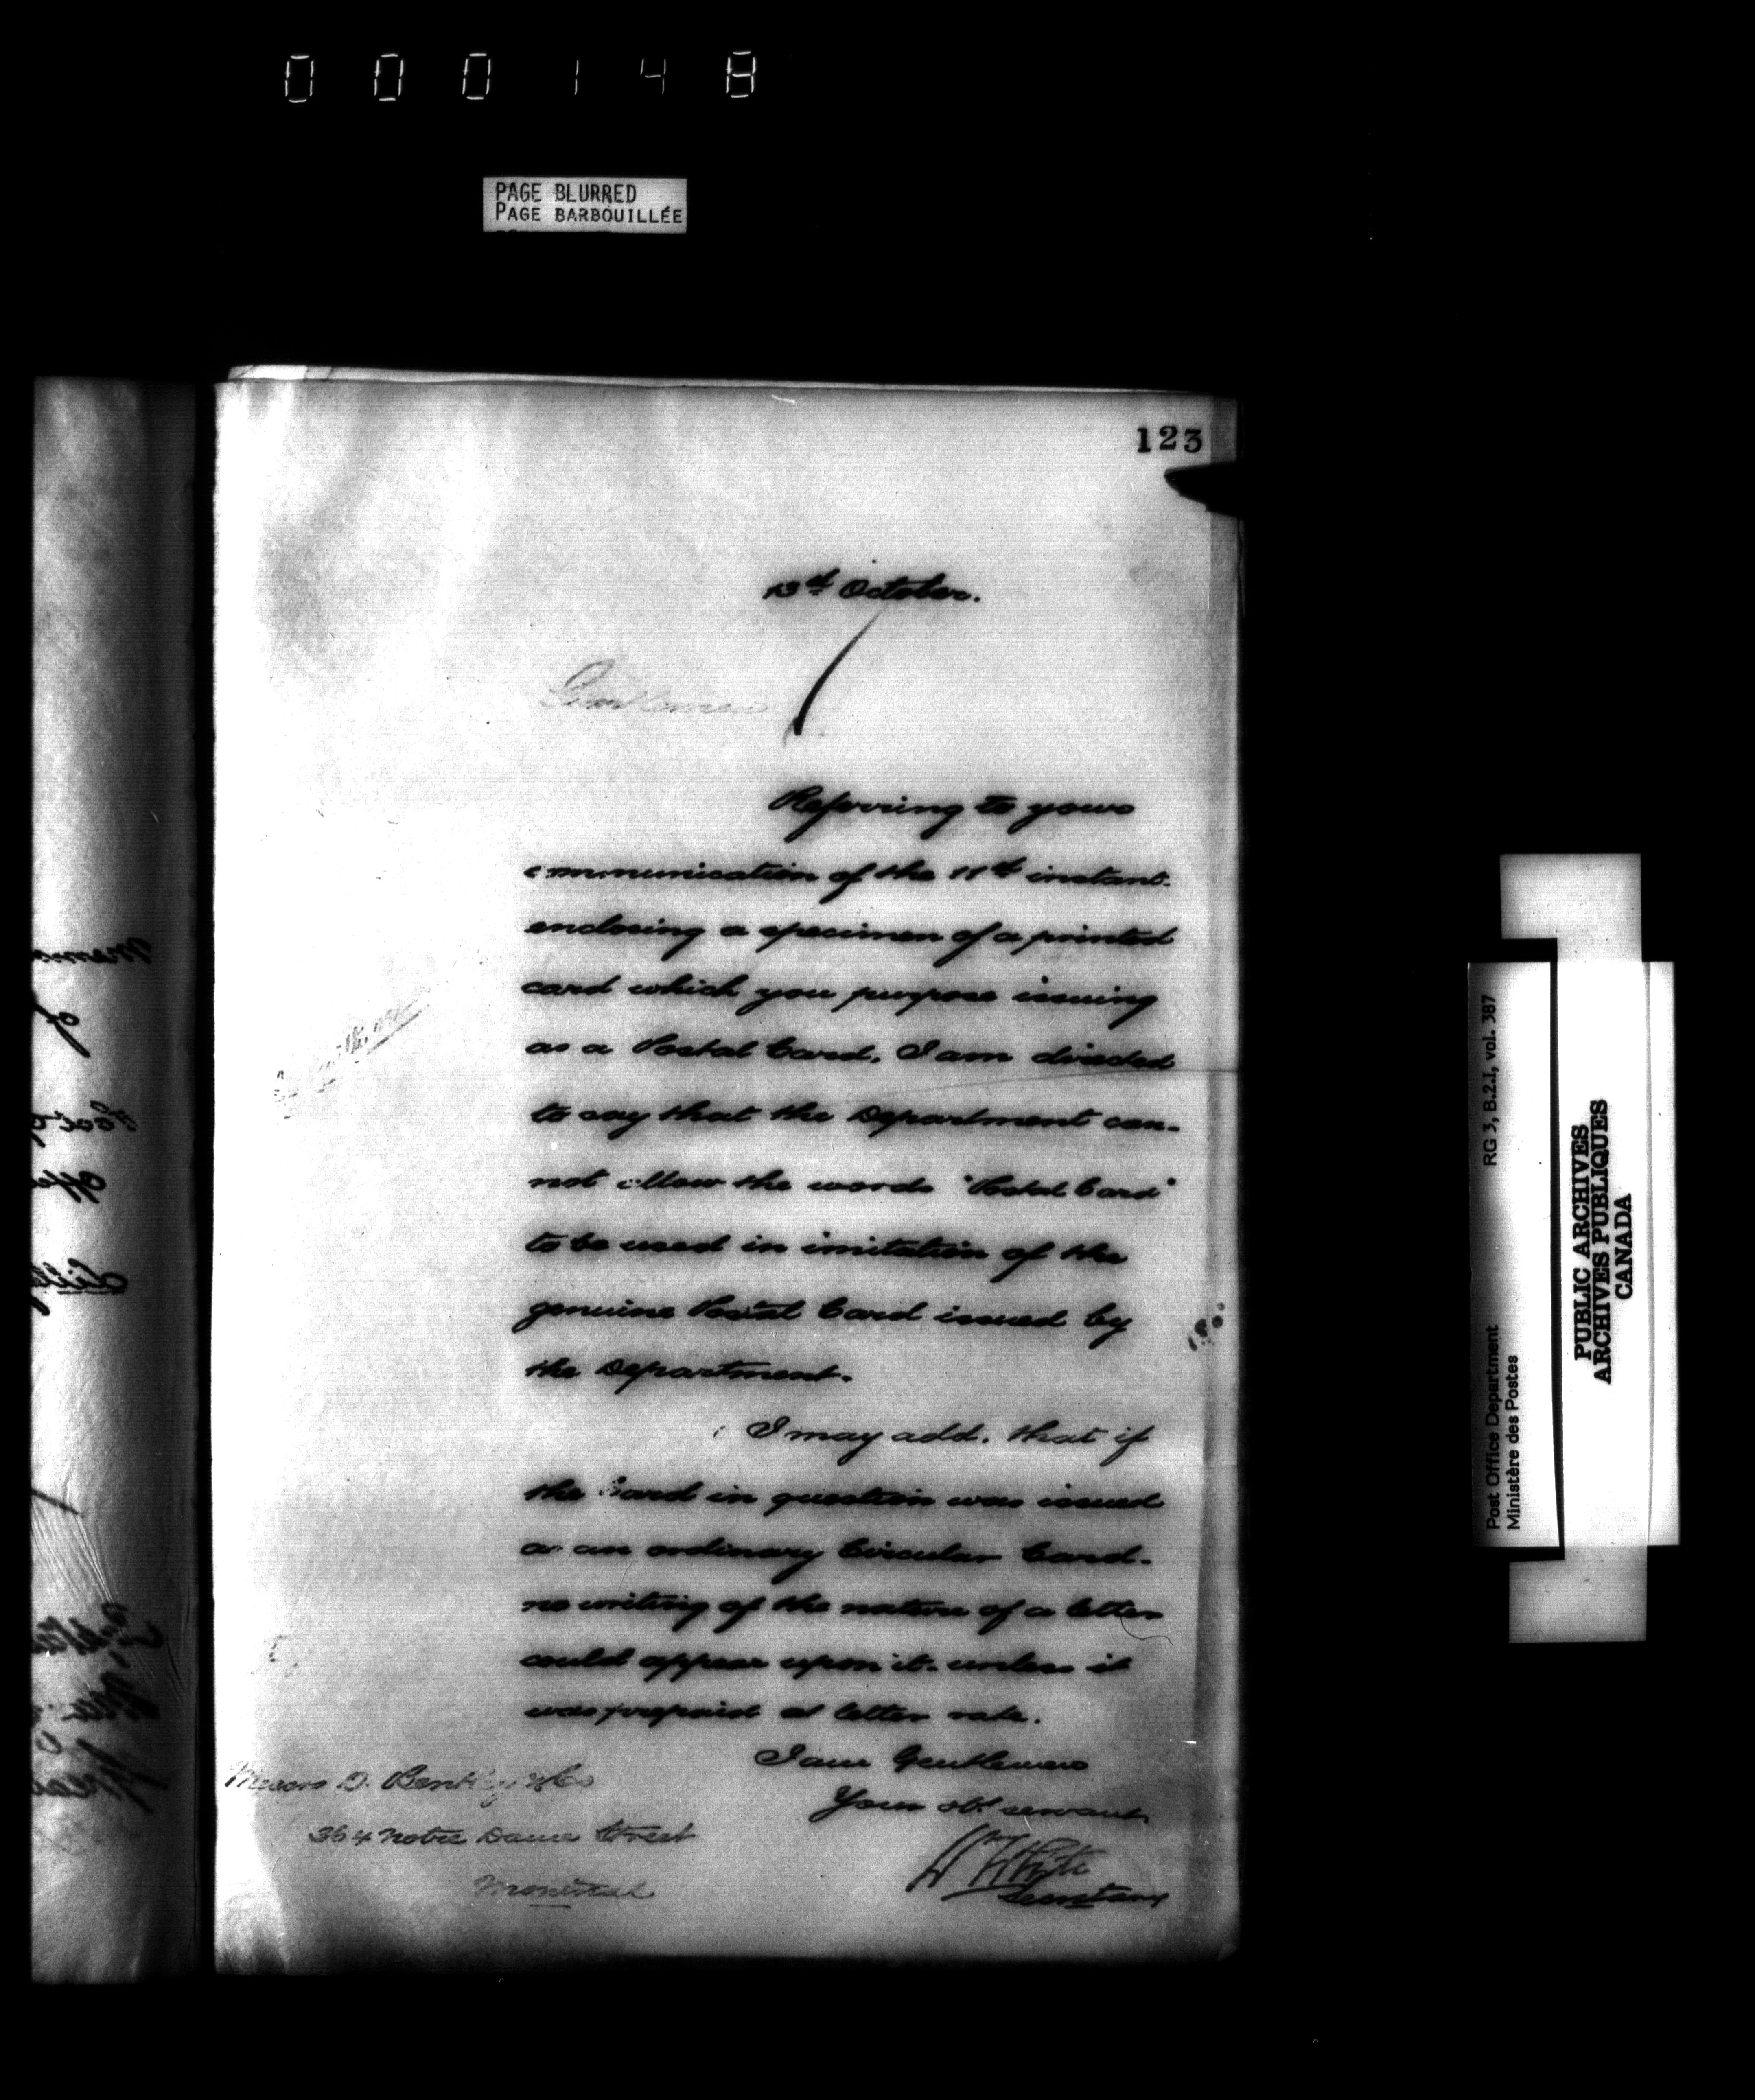 000148
PAGE BLURRED
PAGE BARBOUILLÉE
123
13th October.
Gentlemen
Referring to yours
communication of the 11th instant.
enclosing a specimen of a printed
card which you purpose issuing
as a Postal Card, I am directed
to say that the Department can-
not allow the words "Postal Card"
to be used in imitation of the
genuine Postal Card issued by
the Department.
I may add, that if
the Card in question was issued
as an ordinary Circular Card.
no writing of the nature of a letter
could appear upon it. unless it
was prepaid at letter rate.
I am Gentlemen
Your obt servant
Wm White
Secretary
Messrs D. Bentley & Co
364 Notre Dame Street
Montreal
Post Office Department RG 3, B.2.I, vol. 387
Ministère des Postes
PUBLIC ARCHIVES
ARCHIVES PUBLIQUES
CANADA